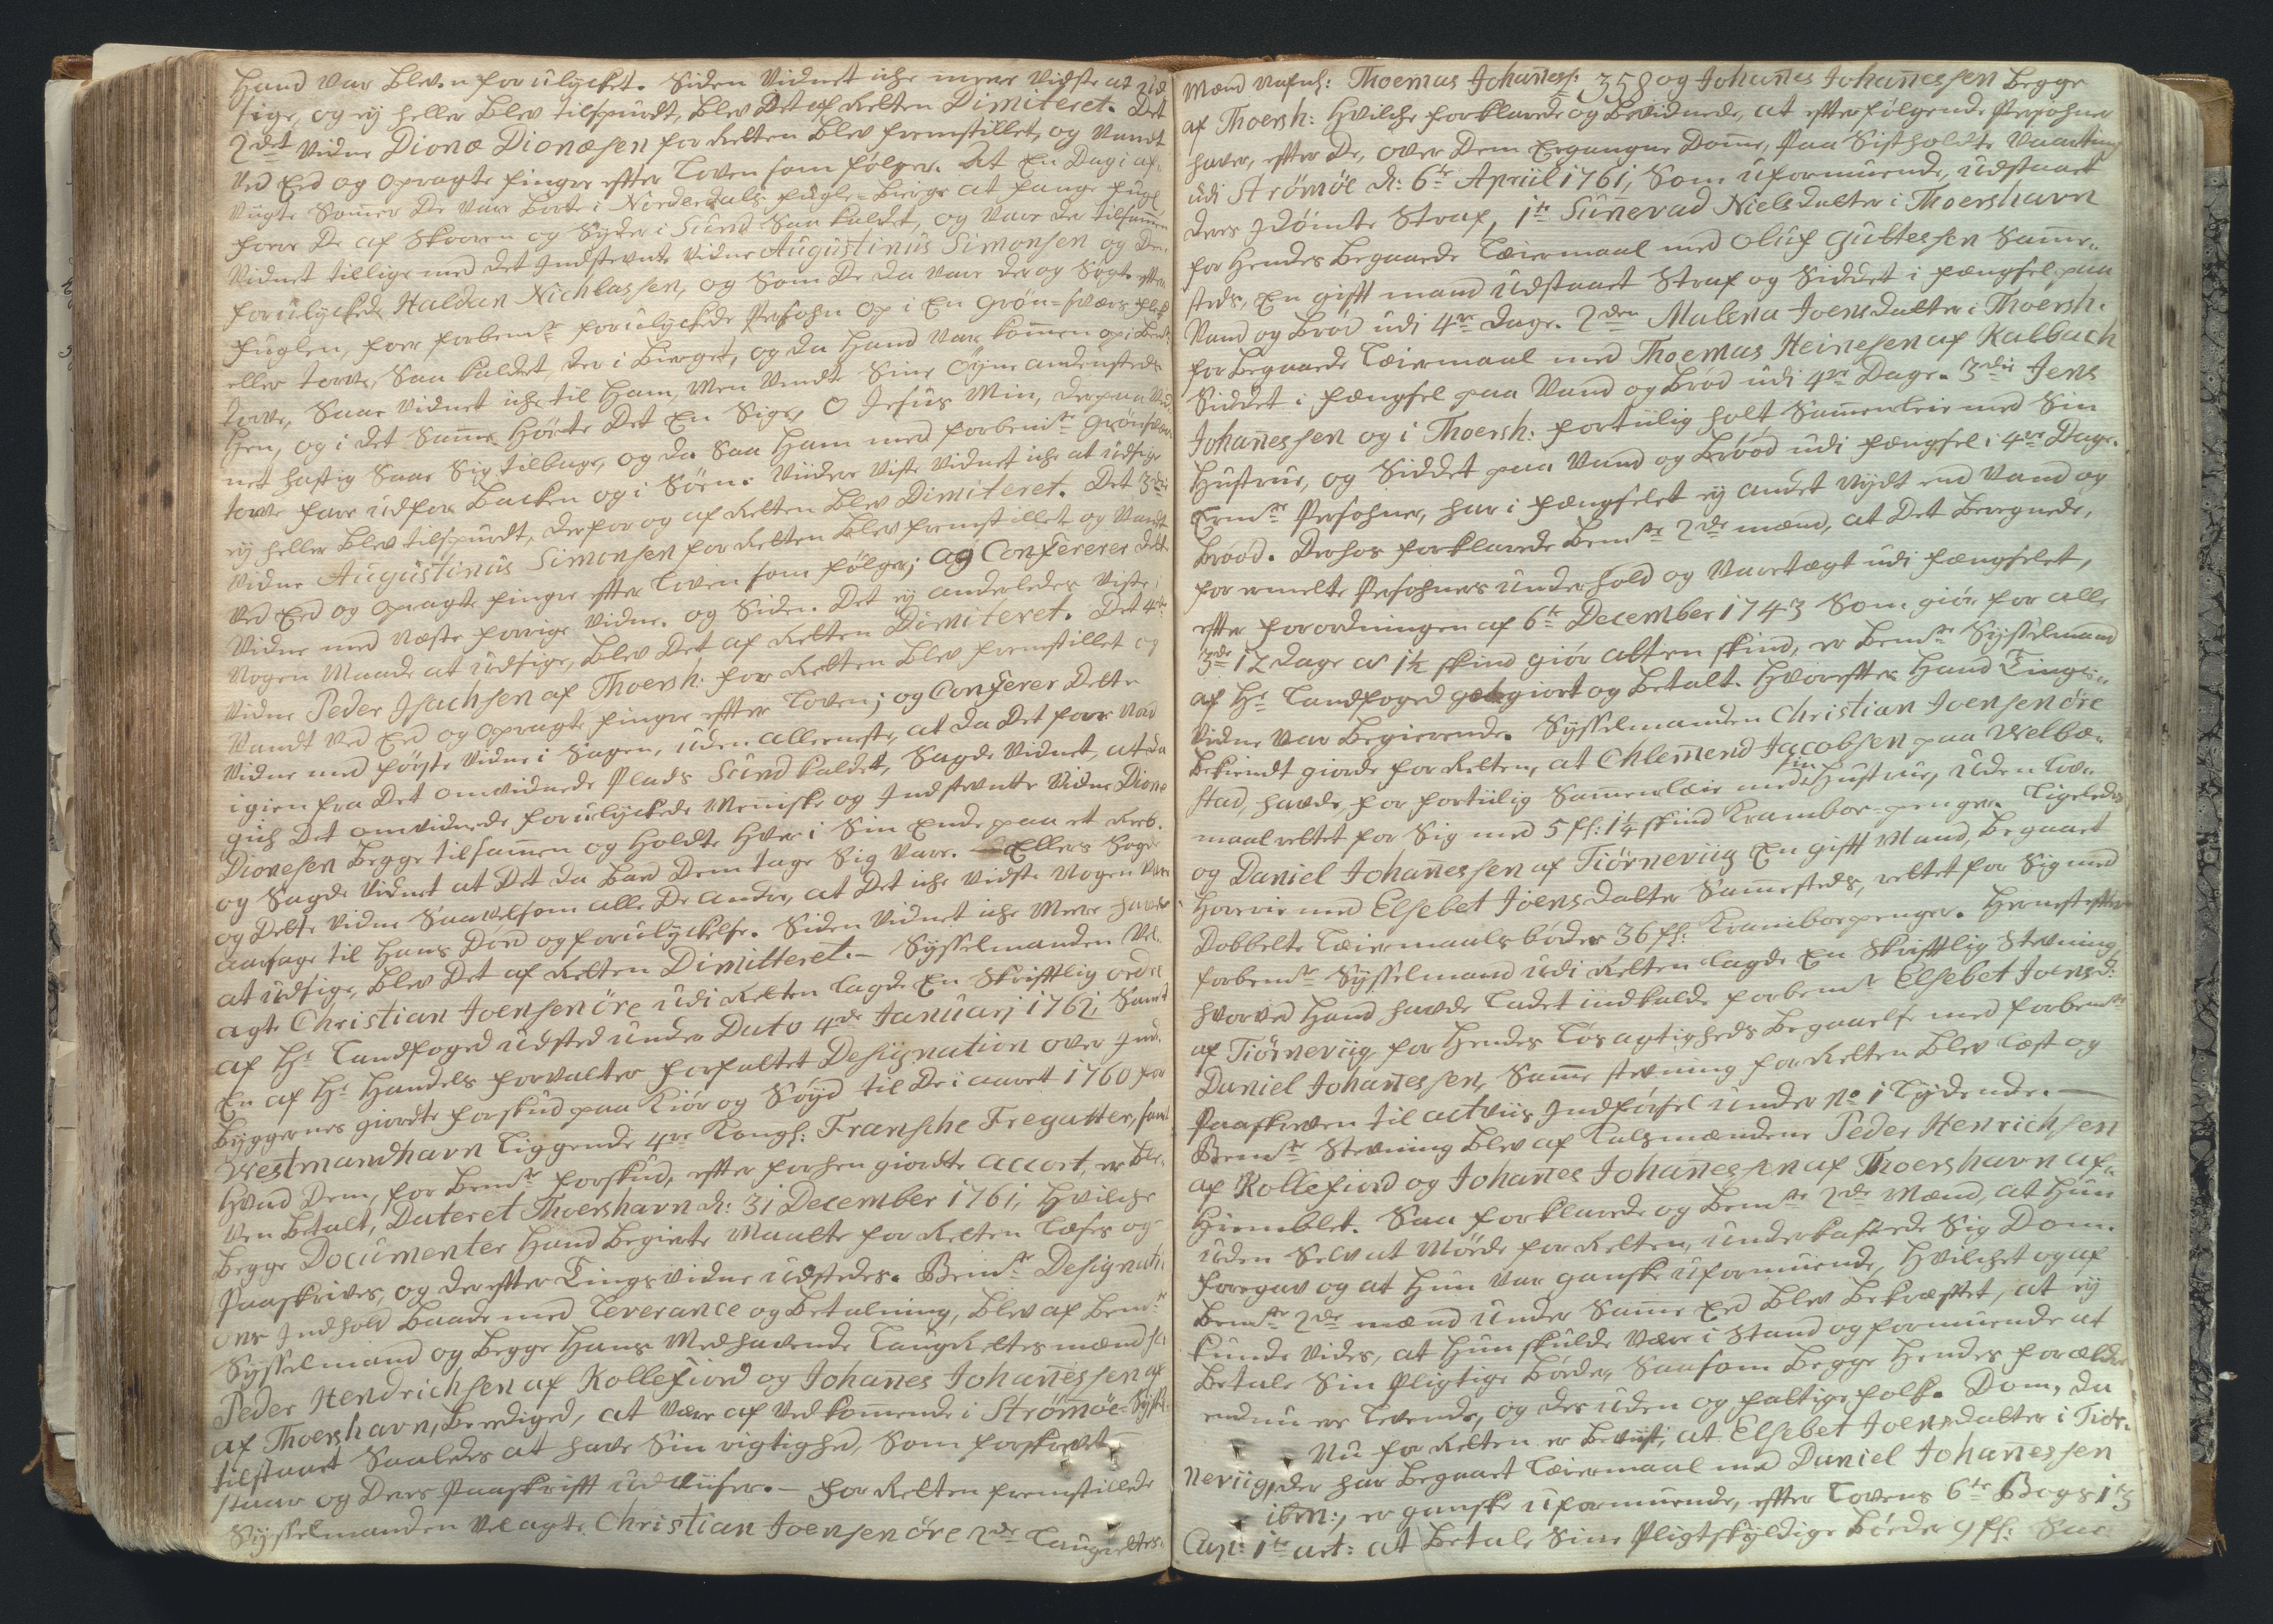 Hand var blev.n forulycket. Siden Vidnet iche mere vidste at ud
sige, og ey heller blev tilspurdt, blev det af Retten Dimiteret. Det
2det Vidne Dionæ Dionæsen for Retten blev fremstillet, og Vandt
ved Eed og opragte fingre efter Loven som følger. At En Dag i af-
vigte Sommer de var borte i Norderdals fugle-bierge at fange fugl
foer de af Skoren og Syder i Sund saa kaldet, og vare da tilsammen
Vidnet tillige med det Indstevnte Vidne Augustinus Simonsen og den
forulyckede Haldan Nichlassen, og som de da vare der og søgte efter
fuglen, foer forbemte forulyckede Persohn op i En grøn-sværs flek
eller torve, saa kaldet, der i bierget, og da hand var kommen op i bemte
torve, saae Vidnet iche til ham, men vendte sine Øyne andensteds
hen, og i det samme hørte det En sige, O Jesus Min, derpaa Vid-
net hastig saae sig tilbage, og da saa ham med forbemte grønsvær
torve fare udfor backen og i Søen. Viidere viste Vidnet iche at udsige
ey heller blev tilspurdt, derfor og af Retten blev Dimiteret. Det 3die
Vidne Augustinus Simonsen for Retten blev fremstillet og Vandt
ved Eed og opragte fingre efter Loven som følger; og Confererer dette
Vidne med næste forrige Vidne. og Siden det ey anderledes viste i
Nogen Maade at udsige, blev det af Retten Dimiteret. Det 4de
Vidne Peder Isachsen af Thoersh: for Retten blev fremstillet og
Vandt ved Eed og opragte fingre efter Loven; og Conferer dette
Vidne med første Vidne i Sagen, uden allerneste, at da det foer Nord
igien fra det omvidnede Plads Sund kaldet, sagde Vidnet, at da
gich det omvidnede forulyckede Menniske og Indstevnte Vidne Dione
Dionesen begge tilsammen og holdte hver i sin Ende paa et Reeb.
og sagde Vidnet at det da bad dem tage sig vare. Ellers sagde
og dette Vidne saavelsom alle de andre, at det iche vidste Nogen være
aarsage til hans død og forulyckelse. Siden Vidnet iche mere havde
at udsige, blev det af Retten Dimitteret. – Sysselmanden Vel-
agte Christian Joensen øre udi Retten lagde En skrifftlig ordre
af Hr Landfoged udsted under Dato 4de Januarj 1762, samt
En af Hr Handels forvalter forfattet Designation over Ind-
byggernes giordte forskud paa Kiør og Søyd til de i aaret 1760 for
Westmandhavn liggende 4re Kongl: Fransche Fregatter, samt
hvad dem, for bemte forskud, efter forhen giordte accort, er ble-
ven betalt, Dateret Thoershavn d: 31 December 1761, hvilche
begge Documenter hand begierte Maatte for Retten læses og
Paaskrives, og derefter Tingsvidne udstedes. Bemte Designati
ons Indhold baade med Leverance og betalning, blev af bemte
Sysselmand og begge hans Medhavende Laugrettes mænd sa
Peder Hendrichsen af Kollefiord og Johannes Johannessen af
af Thoershavn, beediged, at være af Vedkommende i Strømøe-Syssel
tilstaaet saaledes at have sin rigtighed, som forskrevet
staar og deres Paaskrift udviiser. – for Retten fremstillede
Sysselmanden Velagte Christian Joensen øre 2de Laugrettes-
Mænd Nafnl: Thoemas Johanness: 358 og Johannes Johannessen begge
af Thoersh: hvilche forklarede og bevidnede, at efterfølgende Persohner
haver, efter de, over dem Ergangne Domme, paa sistholdte Vaarting
udi Strømøe d: 6te Apriil 1761, som uformuende, udstaaet
deres Idømte Straf, 1te Sunevad Nielsdatter i Thoershavn
for hendes begaaede Leiermaal med Oluf Guttessen samme-
steds, En gifft mand udstaaet Straf og Siddet i fængsel paa
Vand og brød udi 4re dage. 2den Malena Joensdatter i Thoersh:
for begaaede Leiermaal med Thoemas Heinesen af Kalbach
Siddet i fængsel paa Vand og brød udi 4re Dage. 3die Jens
Johannessen og i Thoersh: fortiilig holt Sammenleie med sin
Hustrue, og Siddet paa Vand og brøod udi fængsel i 4re Dage.
Ermte Persohner, har i fængselet ey andet nydt end Vand og
brøod. Derhos forklarede bemte 2de mænd, at det beregnede,
for ermelte Persohners underhold og Varetægt udi fængselet,
efter forordningen af 6te December 1743 som giør for alle
3de 12 dage a 1½ skind giør atten skind, er bemte Sysselmand
af Hr Landfoged godtgiort og betalt. hvorefter hand Tings-
Vidne var begierende. Sysselmanden Christian Joensen øre
bekiendt giorde for Retten, at Chlemend Jacobsen paa Welbæ-
stad, havde, for fortiilig Sammenleie med sin Hustrue, uden Lov-
maal rettet for sig med 5 fl: 1¼ skind Krambor-penger. Ligeledes
og Daniel Johannessen af Tiørneviig En gifft Mand, begaaet
Horerie med Elsebet Joensdatter sammesteds, rettet for sig med
Dobbelte Leiermaalsbøder 36 fl: Kramborpenger. Hernest efter
forbemte Sysselmand udi Retten lagde En skrifftlig Stevning,
hvorved hand havde ladet indkalde forbemte Elsebet Joensd:
af Tiørneviig for hendes Løsagtigheds begaaelse med forbemte
Daniel Johannessen, Samme stevning for Retten blev læst og
Paaskreven til actviis Indførsel under No 1 Lydende. –
Bemte Stevning blev af Kalsmændene Peder Henrichsen
af Kollefiord og Johannes Johannessen af Thoershavn af-
hiemblet. Saa forklarede og bemte 2de Mænd, at hun
uden selv at Møede for Retten, underkastede sig Dom.
foregav og at hun var ganske uformuende, hvilchet og af
bemte 2de mænd under samme Eed blev bekræftet, at ey
kunde vides, at hun skulde være i stand og formuende at
betale sin Pligtige bøder, saasom begge hendes forældre
endnu ere levende, og desuden og fattige folk. Dom, da
Nu for Retten er beviist, at Elsebet Joensdatter i Tiør-
neviig, der har begaaet Leiermaal med Daniel Johannessen
ibm:, er ganske uformuende, efter Lovens 6te Bogs 13
Cap: 1te art: at betale sine Pligtskyldige bøder 9 fl: Saa